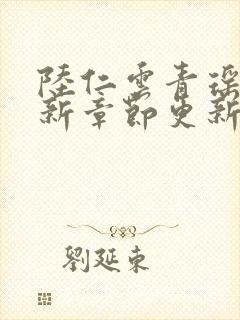 陸仁雲青瑤
新章節更新
劉延東